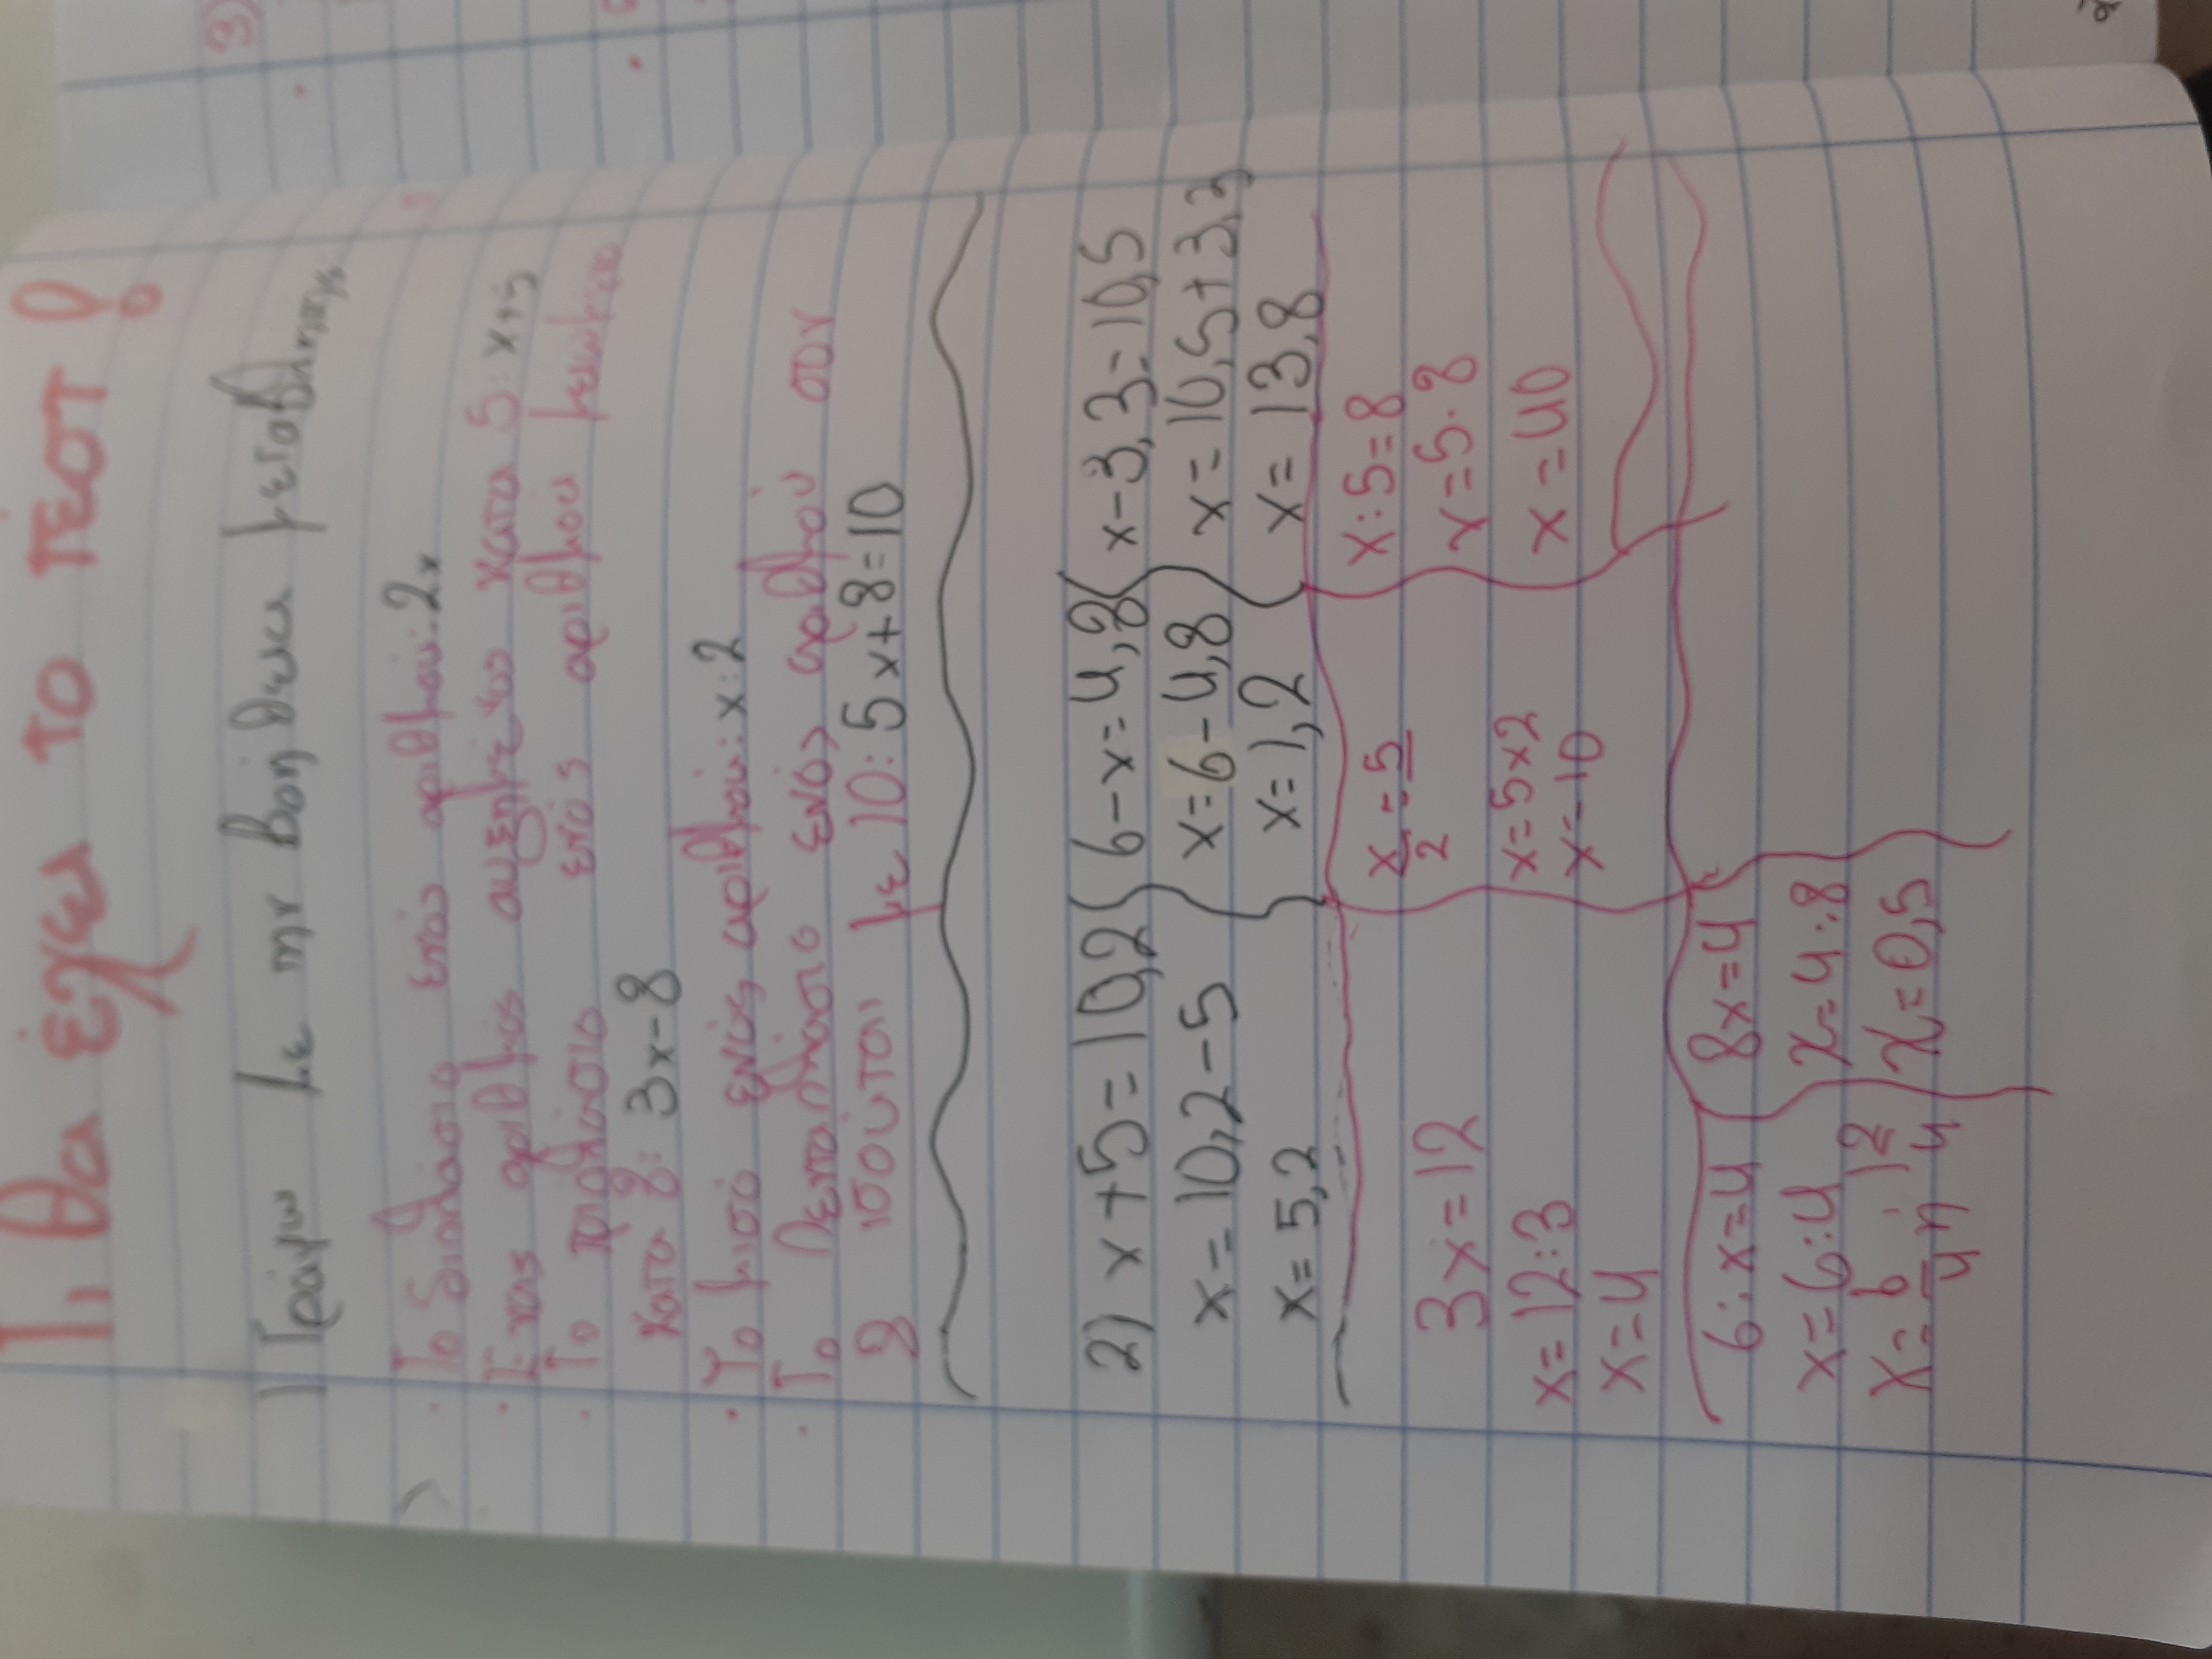 Τι θα έχει το τεστ
1 Γράφω με την βοήθεια μεταβλητής
· Το διπλάσιο ενός αριθμού: 2x
· Ένας αριθμός αυξημένος κατα 5: x+5
· Το τριπλάσιο ενός αριθμού μειωμένο
κατα 8: 3x-8
· Το μισό ενός αριθμού: x:2
· Το πενταπλάσιο ενός αριθμού συν
8 ισούται με 10: 5x+8=10
2) x+5=10,2
x=10,2-5
x=5,2
6-x=4,8
x=6-4,8
x=1,2
x-3,3=10,5
x=10,5+3,3
x=13,8
3x=12
x=12:3
x=4
x/2=5
x=5x2
x=10
x:5=8
x=5·8
x=40
6:x=4
x=6:4
x=6/4
8x=4
x=4:8
x=0,5
3)